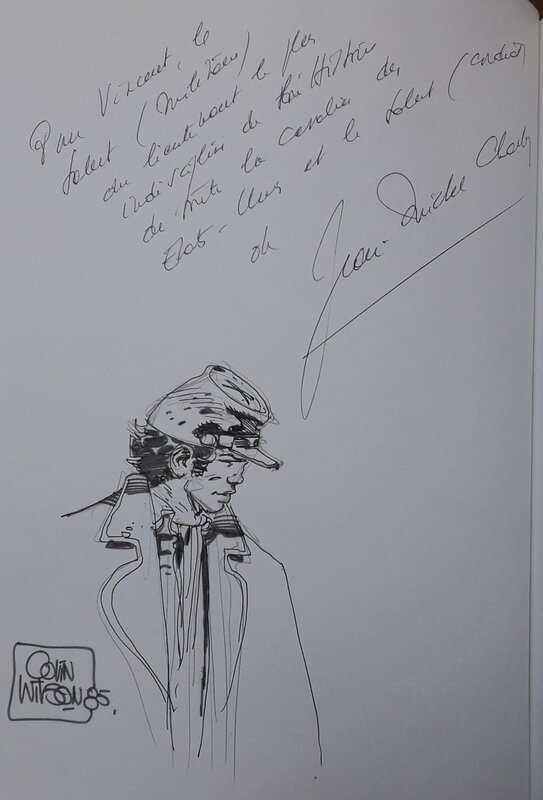 Pour Vincent, le
salut (militaire)
du lieutenant le plus
indiscipliné de l'histoire
de toute la cavalerie des
Etats-Unis et le salut (cordial)
de
Jean-Michel Charlier
COLIN
WILSON 85.